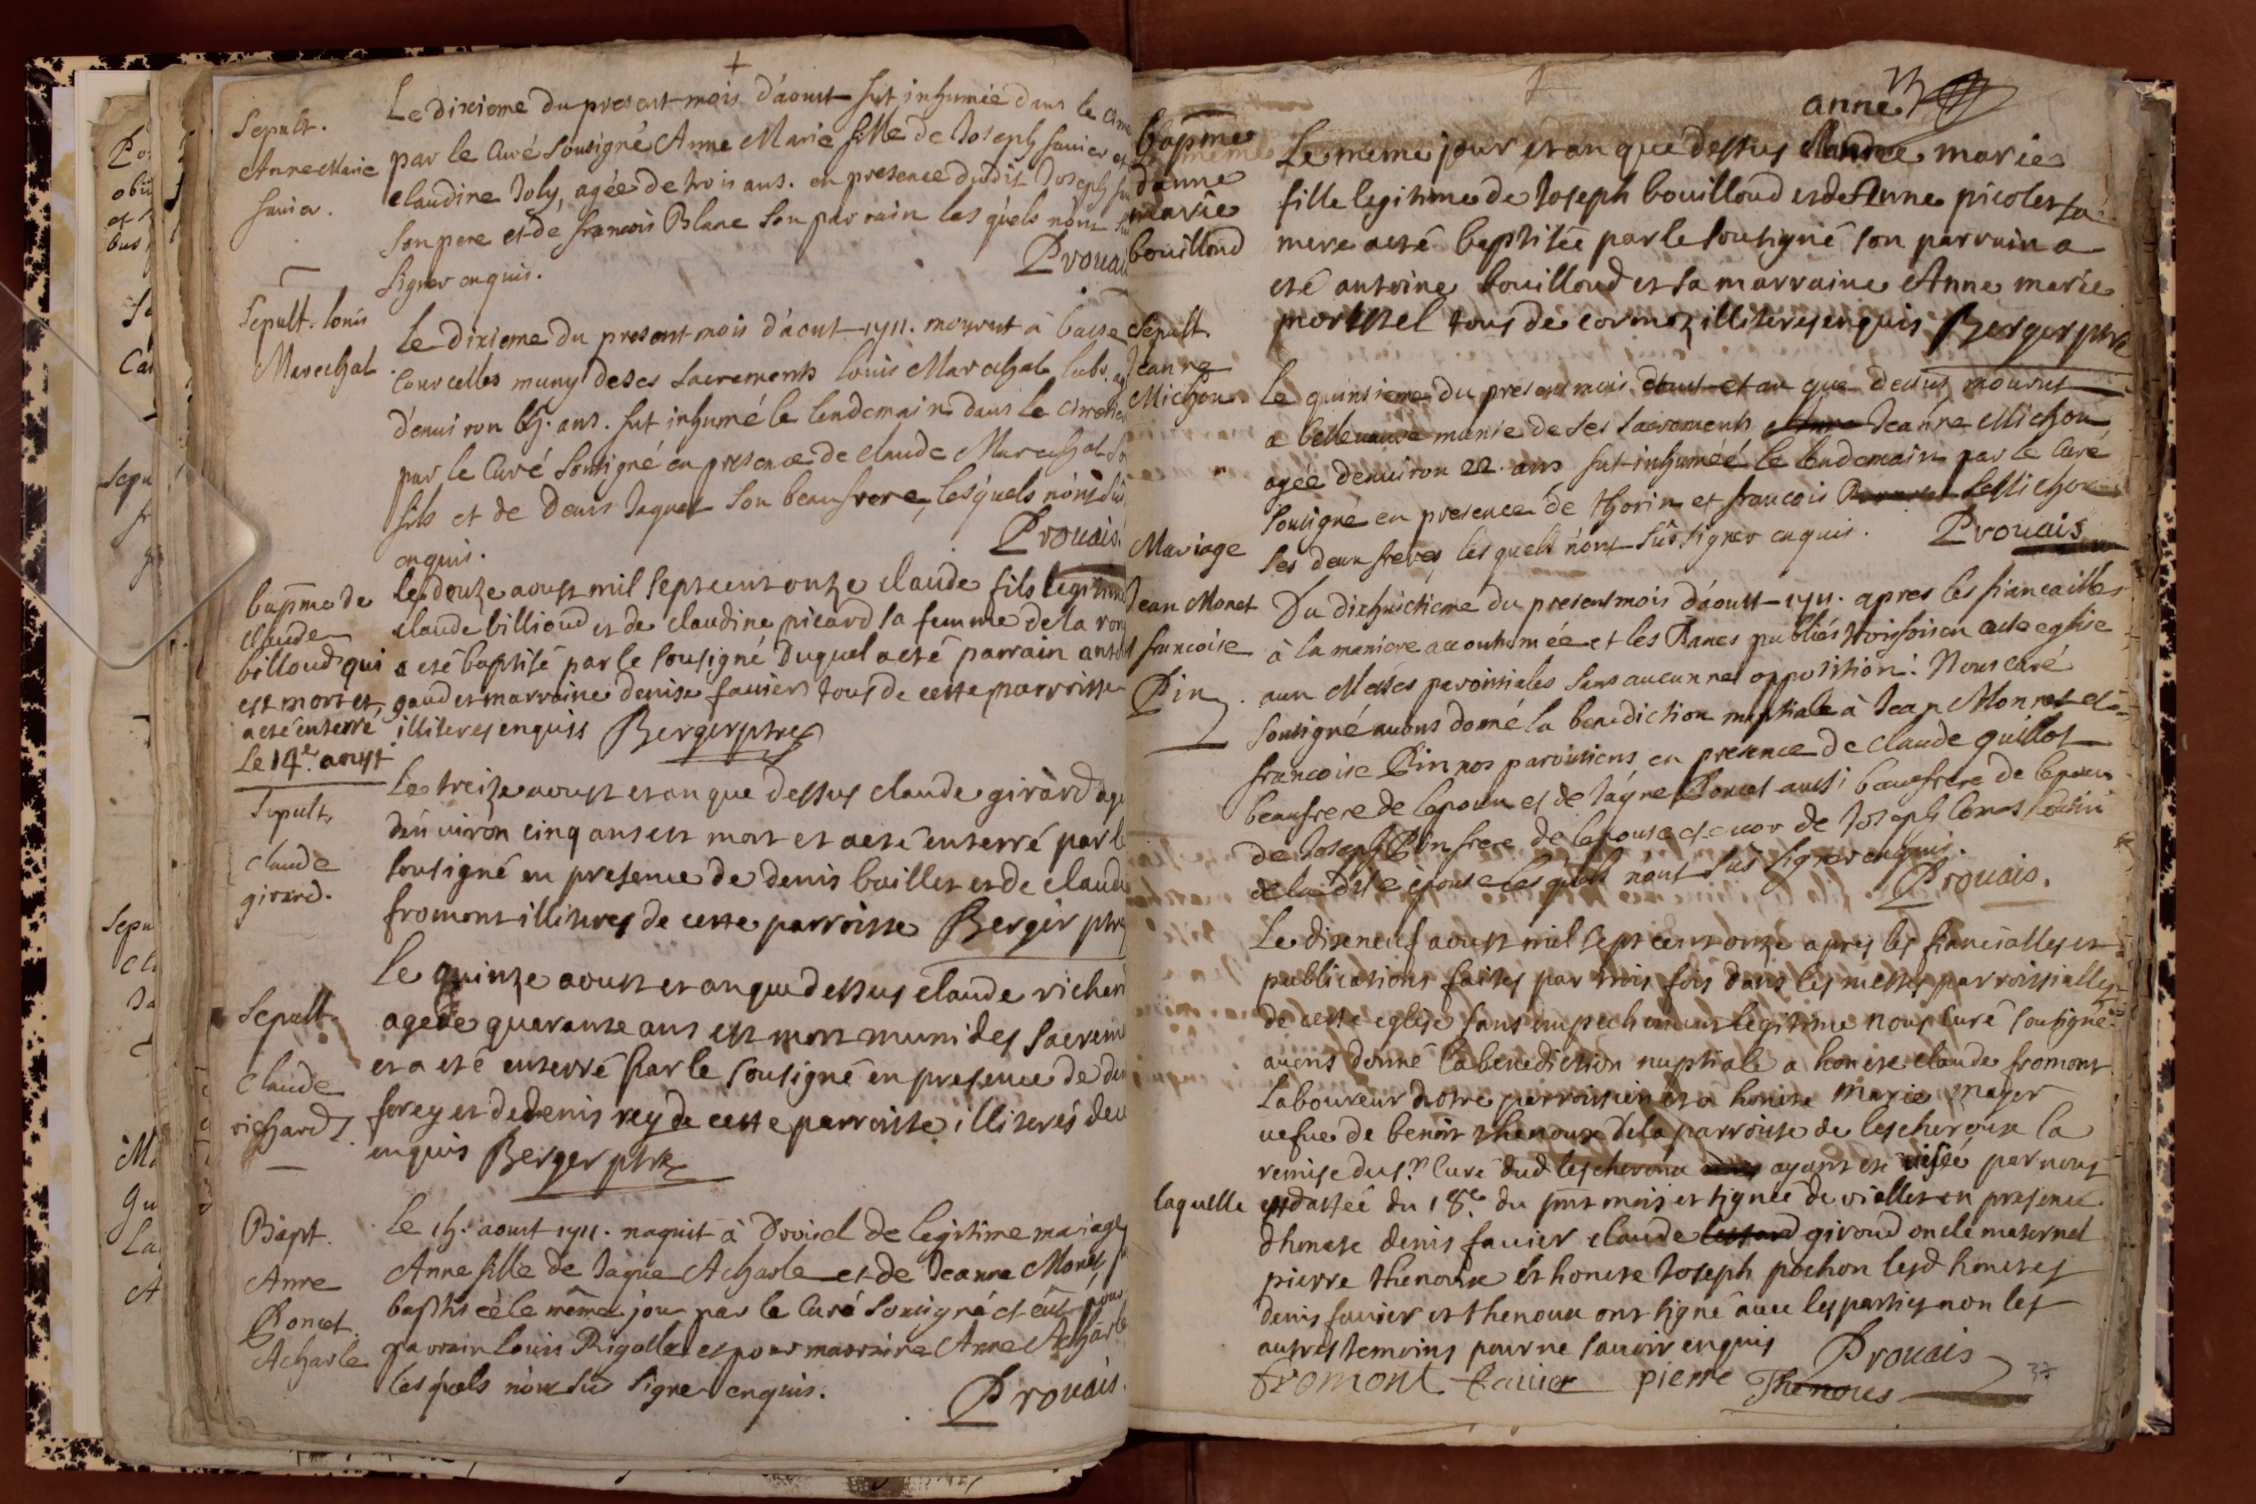 Sepult.
Anne Marie
favier.
Le dixieme du present mois d'aoust fut inhumée dans le cime
par le Curé sousigné Anne Marie fille de Joseph favier et
claudine Joly, agée de trois ans. en presence dudit Joseph
son pere et de francois Blanc son parrain les quels nont su
signer enquis.
Prouais
Sepult. louis
Marechal
Le dixieme du present mois d'aout 1711. mourut à basse
Courcelles muny de ses sacrements louis Marechal labr.
d'enuiron 65. ans. fut inhumé le lendemain dans le cimetie
par le Curé sousigné en presence de claude Marechal so
fils et de Denis Jaquet son beaufrere, lesquels n'ont sú
enquis.
Prouais.
bapme de
claude
billoud qui
est mort et
a esté enterré
Le 14e aoust
le douze aoust mil sept cent onze claude fils legitime
claude billioud et de claudine picard sa femme de la
a esté baptisé par le sousigné duquel a esté parrain ant
gaud et marraine denise favier tous de cette parroisse
illiteres enquis Berger ptre
Sepult.
claude
girard.
Le treize aoust et an que dessus claude girard agé
d'enuiron cinq ans est mort et a esté enterré par le
sousigné en presence de denis baillet et de claude
fromont illiteres de cette parroisse Berger ptre
Sepult.
Claude
richard
le quinze aoust et an que dessus claude richard
agé de quarante ans est mort muni des sacrem
et a esté enterré par le sousigné en presence de
forey et de denis rey de cette parroisse illiterés
enquis Berger ptre
Bapt.
Anne
Poncet
Acharle
le 15. aoust 1711. naquit à de legitime mariage
Anne fille de Jaque Acharle et de Jeanne Monet,
baptisée le même jour par le Curé sousigné et eut pour
parrain louis Rigollet et pour marraine Anne Acharle
lesquels nont su signer enquis.
Prouais.
bapme
danne
marie
bouilloud
anne
Le meme jour et an que dessus marie
fille legitime de Joseph bouilloud et de Anne picolet sa
mere a esté baptisée par le sousigné son parrain a
esté antoine bouilloud et sa marraine Anne marie
mortel tous de cormoz illiteres enquis Berger ptre
Sepult.
Jeanne
Michon
Le quinsieme du present mois et an que dessus mourut
a bellevavre munie de ses sacrements Jeanne Michon
agée denuiron 22 ans fut inhumée le lendemain par le Curé
sousigné en presence de thorin et francois Michon
ses deux freres, les quels n'ont sú signer enquis. Prouais
Mariage
Jean Monet
francoise
Pin
Du dixhuictieme du present mois d'aoust 1711. apres les fiancailles
à la maniere accoutumée et les Bancs publiés trois fois en cette eglise
aux Messes paroissiales sans aucunne opposition: Nous curé
sousigné auons donné la benediction nuptiale à Jean Monnet et à
francoise Pin nos paroissiens en presence de claude guillot
beaufrere de lepoux et de Jâque Poncet aussi beaufrere de lepoux
de Joseph Pin frere de lepouse et encor de Joseph Comas cousin
de ladite épouse lesquels nont sus signer enquis.
Prouais.
Le dixneuf aoust mil sept cent onze apres les fiancialles et
publications faites par trois fois dans les messes parroissialles
de cette eglise sans empechement legitime nous curé sousigné
auons donné la benediction nuptiale a honeste claude fromont
laboureur notre parroissien et a honeste marie mayer
uefue de benoit thenoux de la parroisse de lescheroux la
remise du sr Curé dud lescheroux ayant esté visée par nous
laquelle est dattée du 18e du pnt mois et signée de viallet en presence
dhoneste denis favier claude giroud oncle maternel
pierre thenoux et honeste Joseph pochon lesd honestes
denis favier et thenoux ont signé auec les parties non les
autres temoins pour ne sauoir enquis Prouais
fromont favier pierre Thenoues
37